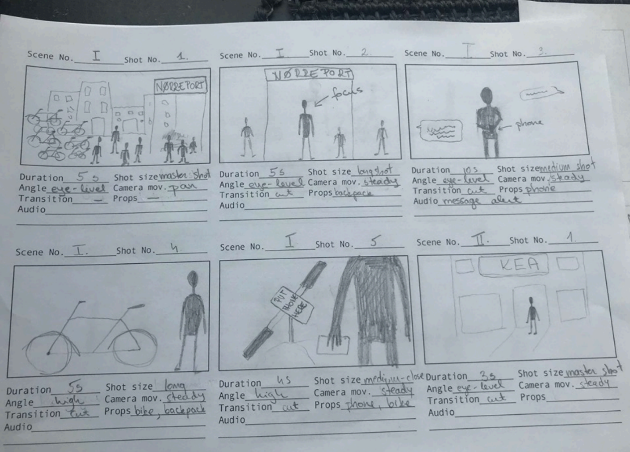 Scene No. I Shot No. 1.
NØRREPORT
Duration 5s Shot size master shot
Angle eye-level Camera mov. pan
Transition — Props —
Audio
Scene No. I Shot No. 2
NØRREPORT
focus
Duration 5s Shot size long shot
Angle eye-level Camera mov. steady
Transition cut Props backpack
Audio
Scene No. I Shot No. 3.
phone
Duration 10s Shot size medium shot
Angle eye-level Camera mov. steady
Transition cut Props phone
Audio message alert
Scene No. I. Shot No. 4
Duration 5s Shot size long
Angle high Camera mov. steady
Transition cut Props bike, backpack
Audio
Scene No. I Shot No. 5
HERE
Duration 4s Shot size medium-close
Angle high Camera mov. steady
Transition cut Props phone, bike
Audio
Scene No. II. Shot No. 1.
KEA
Duration 3s Shot size master shot
Angle eye-level Camera mov. steady
Transition cut Props
Audio